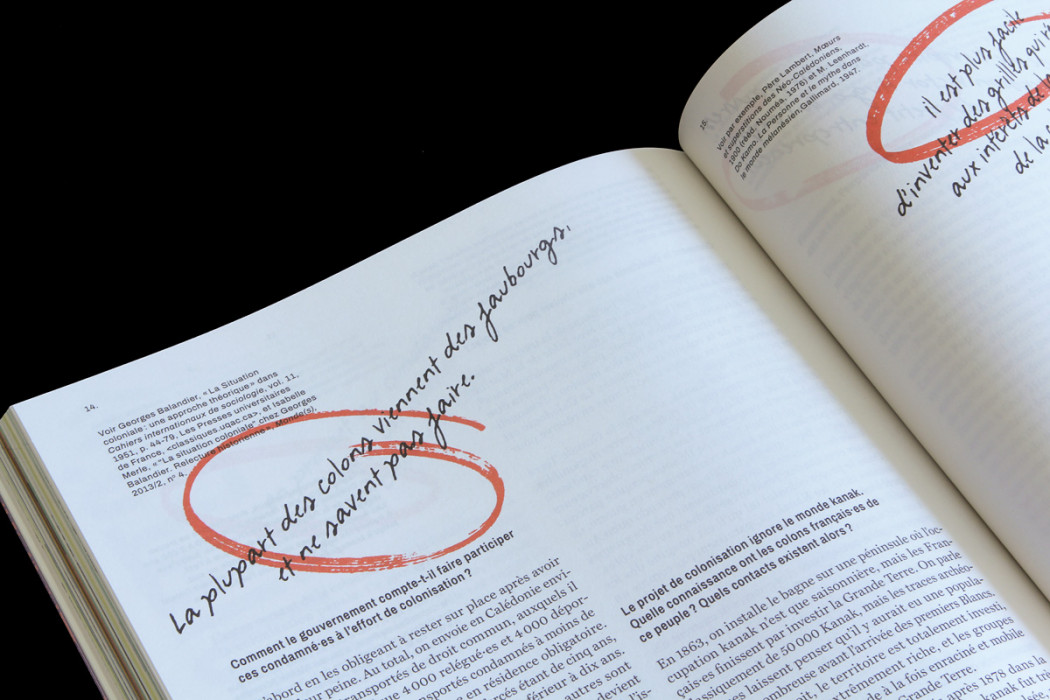 14.
Voir Georges Balandier, « La Situation
coloniale : une approche théorique » dans
Cahiers internationaux de sociologie, vol. 11,
1951, p. 44-79, Les Presses universitaires
de France, <classiques.uqac.ca>, et Isabelle
Merle, « "La situation coloniale" chez Georges
Balandier. Relecture historienne », Monde(s),
2013/2, n° 4.
La plupart des colons viennent des faubourgs,
et ne savent pas faire.
Comment le gouvernement compte-t-il faire participer
ces condamné·es à l'effort de colonisation ?
abord en les obligeant à rester sur place après avoir
ur peine. Au total, on envoie en Calédonie envi-
transportés de droit commun, auxquels il
ne 4 000 relégué·es et 4 000 dépor-
nsportés condamnés à moins de
en résidence obligatoire.
rcés étant de cinq ans,
férieur à dix ans.
autres sont
devient
Le projet de colonisation ignore le monde kanak.
Quelle connaissance ont les colons français·es de
ce peuple ? Quels contacts existent alors ?
En 1863, on installe le bagne sur une péninsule où l'oc-
cupation kanak n'est que saisonnière, mais les Fran-
çais·es finissent par investir la Grande Terre. On parle
classiquement de 50 000 Kanak, mais les traces archéo-
laissent penser qu'il y aurait eu une popula-
mbreuse avant l'arrivée des premiers Blancs.
e territoire est totalement investi,
ement riche, et les groupes
la fois enraciné et mobile
rande Terre.
1878 dans la
il fut
15.
Voir par exemple, Père Lambert, Mœurs
et superstitions des Néo-Calédoniens,
1900 (rééd. Nouméa, 1976) et M. Leenhardt,
Do Kamo. La Personne et le mythe dans
le monde mélanésien, Gallimard, 1947.
il est plus facile
d'inventer des grilles qui
aux intérêts de
de la